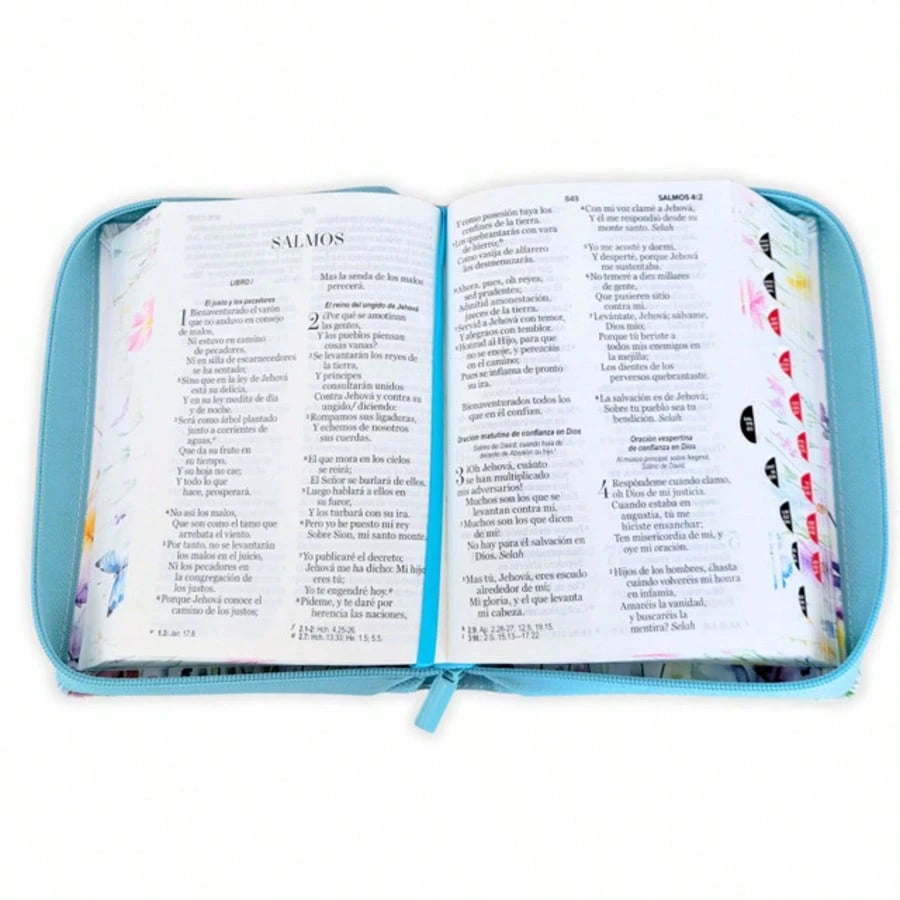 SALMOS
LIBRO I
El justo y los pecadores
1 Bienaventurado el varón
que no anduvo en consejo
de malos,
Ni estuvo en camino
de pecadores,
Ni en silla de escarnecedores
se ha sentado;
2 Sino que en la ley de Jehová
está su delicia,
Y en su ley medita de día
y de noche.
3 Será como árbol plantado
junto a corrientes de
aguas,
Que da su fruto en
su tiempo,
Y su hoja no cae;
Y todo lo que
hace, prosperará.
4 No así los malos,
Que son como el tamo que
arrebata el viento.
5 Por tanto, no se levantarán
los malos en el juicio,
Ni los pecadores en
la congregación de
los justos;
6 Porque Jehová conoce el
camino de los justos;
1.3: Jer. 17.8.
Mas la senda de los malos
perecerá.
El reino del ungido de Jehová
2 ¿Por qué se amotinan
las gentes,
Y los pueblos piensan
cosas vanas?
2 Se levantarán los reyes de
la tierra,
Y príncipes
consultarán unidos
Contra Jehová y contra su
ungido, diciendo:
3 Rompamos sus ligaduras,
Y echemos de nosotros
sus cuerdas.
4 El que mora en los cielos
se reirá;
El Señor se burlará de ellos.
5 Luego hablará a ellos en
su furor,
Y los turbará con su ira.
6 Pero yo he puesto mi rey
Sobre Sion, mi santo monte.
7 Yo publicaré el decreto;
Jehová me ha dicho: Mi hijo
eres tú;
Yo te engendré hoy.
8 Pídeme, y te daré por
herencia las naciones,
2.1-2: Hch. 4.25-26.
2.7: Hch. 13.33; He. 1.5; 5.5.
549
SALMOS 4:2
Y como posesión tuya los
confines de la tierra.
9 Los quebrantarás con vara
de hierro;
Como vasija de alfarero
los desmenuzarás.
Ahora, pues, oh reyes,
sed prudentes;
Admitid amonestación,
jueces de la tierra.
Servid a Jehová con temor,
Y alegraos con temblor.
Honrad al Hijo, para que
no se enoje, y perezcáis
en el camino;
Pues se inflama de pronto
su ira.
Bienaventurados todos los
que en él confían.
Oración matutina de confianza en Dios
Salmo de David, cuando huía de
delante de Absalón su hijo.
3 ¡Oh Jehová, cuánto
se han multiplicado
mis adversarios!
Muchos son los que se
levantan contra mí.
2 Muchos son los que dicen
de mí:
No hay para él salvación en
Dios. Selah
3 Mas tú, Jehová, eres escudo
alrededor de mí;
Mi gloria, y el que levanta
mi cabeza.
2.9: Ap. 2.26-27; 12.5; 19.15.
2 S. 15.13—17.22.
4 Con mi voz clamé a Jehová,
Y él me respondió desde su
monte santo. Selah
5 Yo me acosté y dormí,
Y desperté, porque Jehová
me sustentaba.
6 No temeré a diez millares
de gente,
Que pusieren sitio
contra mí.
7 Levántate, Jehová; sálvame,
Dios mío;
Porque tú heriste a
todos mis enemigos en
la mejilla;
Los dientes de los
perversos quebrantaste.
8 La salvación es de Jehová;
Sobre tu pueblo sea tu
bendición. Selah
Oración vespertina
de confianza en Dios
Al músico principal; sobre Neginot.
Salmo de David.
4 Respóndeme cuando clamo,
oh Dios de mi justicia.
Cuando estaba en
angustia, tú me
hiciste ensanchar;
Ten misericordia de mí, y
oye mi oración.
2 Hijos de los hombres, ¿hasta
cuándo volveréis mi honra
en infamia,
Amaréis la vanidad,
y buscaréis la
mentira? Selah